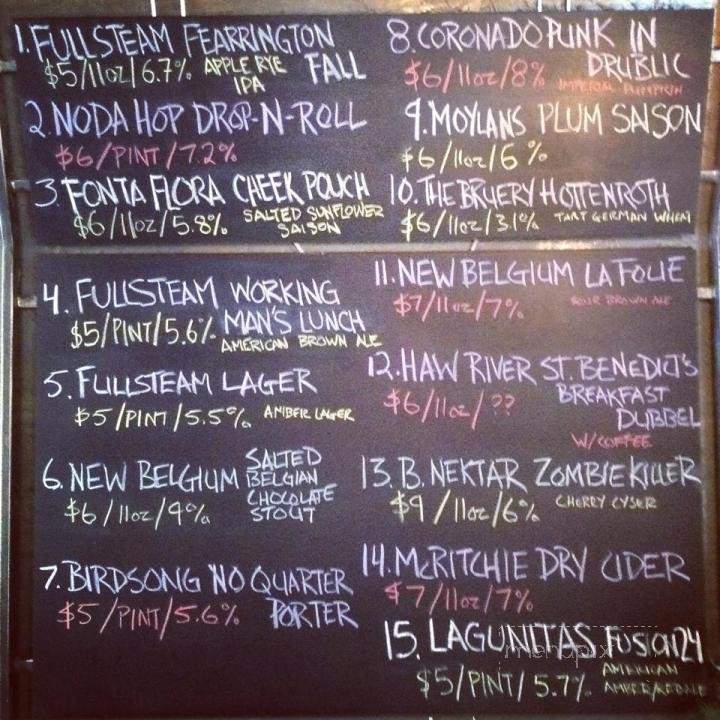 1. FULLSTEAM FEARRINGTON
FALL
$5/11oz/6.7% APPLE RYE
IPA
2. NODA HOP DROP-N-ROLL
$6/PINT/7.2%
3. FONTA FLORA CHEEK POUCH
$6/11oz/5.8% SALTED SUNFLOWER
SAISON
4. FULLSTEAM WORKING
MAN'S LUNCH
$5/PINT/5.6% AMERICAN BROWN ALE
5. FULLSTEAM LAGER
$5/PINT/5.5% AMBER LAGER
6. NEW BELGIUM SALTED
BELGIAN
CHOCOLATE
STOUT
$6/11oz/9%
7. BIRDSONG NO QUARTER
PORTER
$5/PINT/5.6%
8. CORONADO PUNK IN
DRUBLIC
$6/11oz/8% IMPERIAL PUMPKIN
9. MOYLANS PLUM SAISON
$6/11oz/6%
10. THE BRUERY HOTTENROTH
$6/11oz/3.1% TART GERMAN WHEAT
11. NEW BELGIUM LA FOLIE
$7/11oz/7% SOUR BROWN ALE
12. HAW RIVER ST. BENEDICT'S
BREAKFAST
DUBBEL
$6/11oz/??
W/COFFEE
13. B. NEKTAR ZOMBIE KILLER
$9/11oz/6% CHERRY CYSER
14. McRITCHIE DRY CIDER
$7/11oz/7%
15. LAGUNITAS FUSION 24
$5/PINT/5.7% AMERICAN
AMBER/RED ALE
menupix